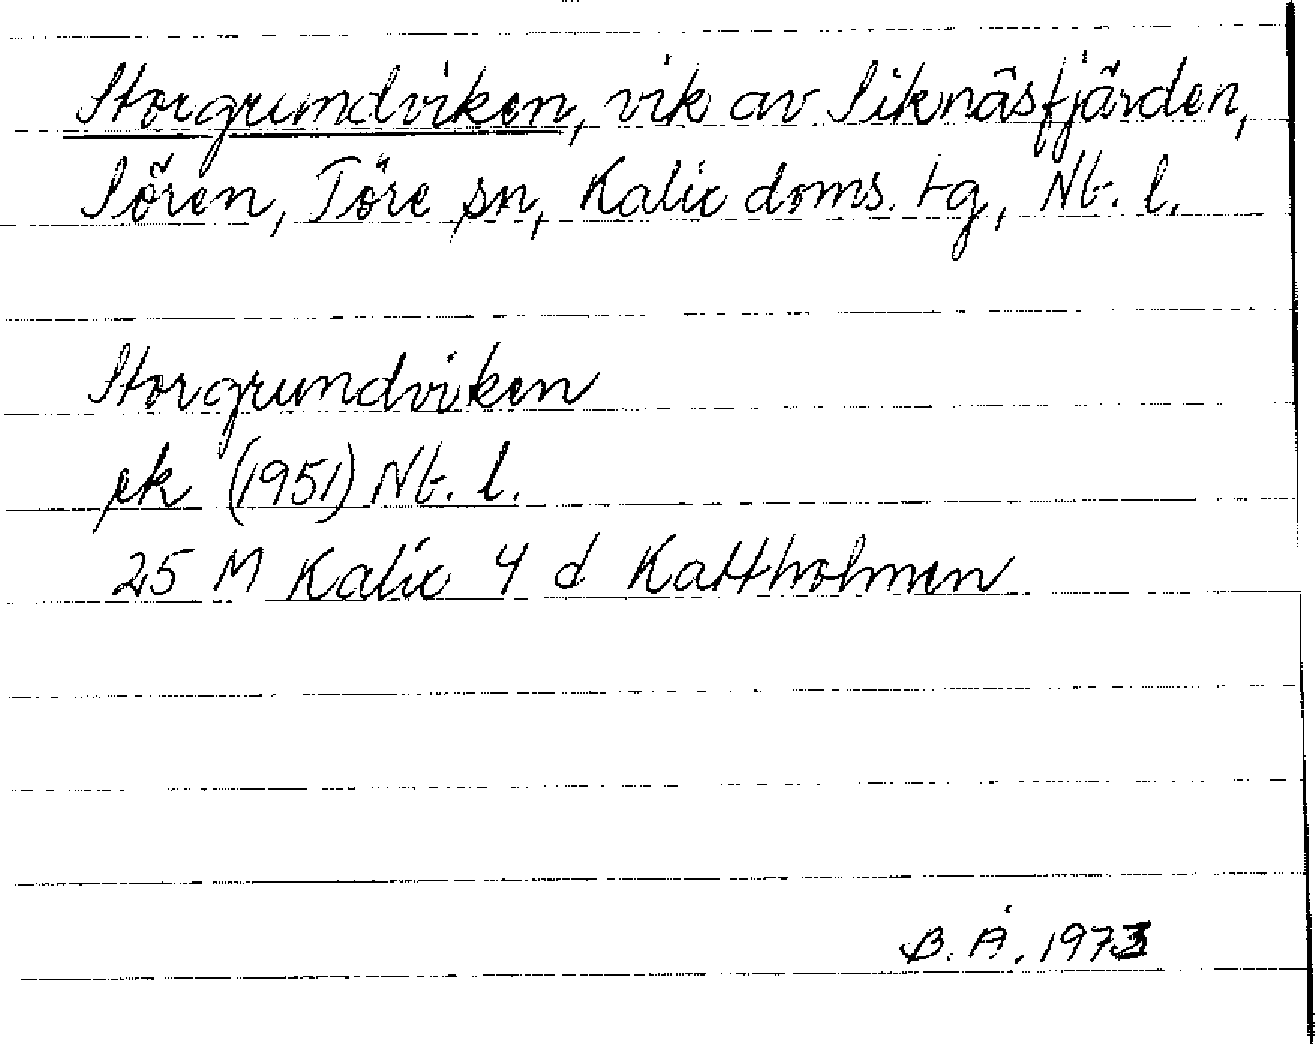 Storgrundviken, vik av Siknäsfjärden,
Sören, Töre sn, Kalix doms. tg, Nb. l.
Storgrundviken
ek (1951) Nb. l.
25 M Kalix 4 d Kattholmen
B. Å. 1973